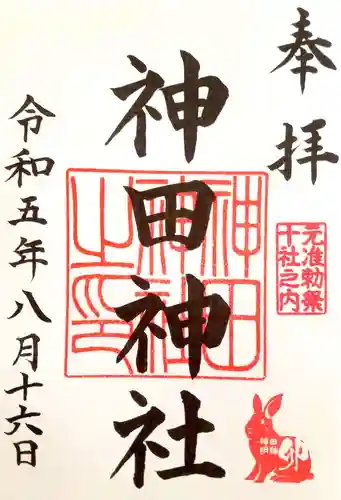 奉拝
元准勅祭
十社之内
神田神社
神田神社之印
神田明神
卯
令和五年八月十六日